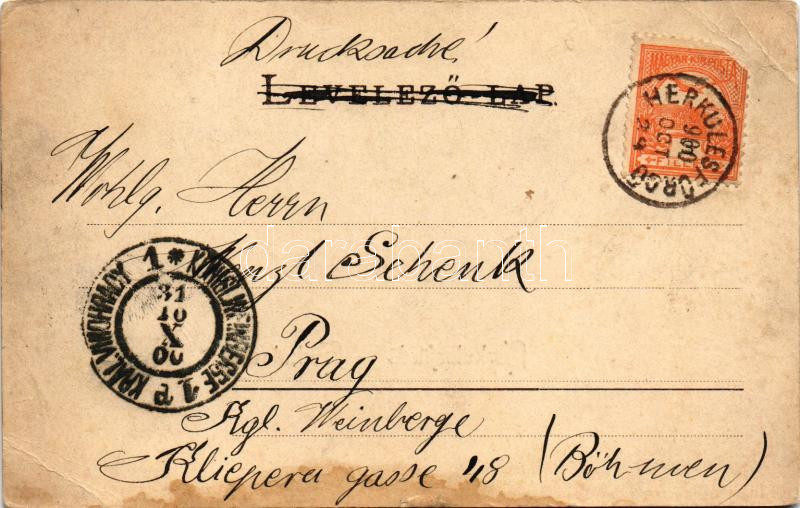 Drucksache!
LEVELEZŐ-LAP.
MAGYAR KIR. POSTA
HERKULESFÜRDŐ
900
OCT
24
Wohlg. Herrn
Wenzl Schenk
Prag
Kgl. Weinberge
Klicpera gasse 48 (Böhmen)
KRÁL. VINOHRADY 1 * KÖNIGL. WEINBERGE 1
31
10
X
00
darabanth